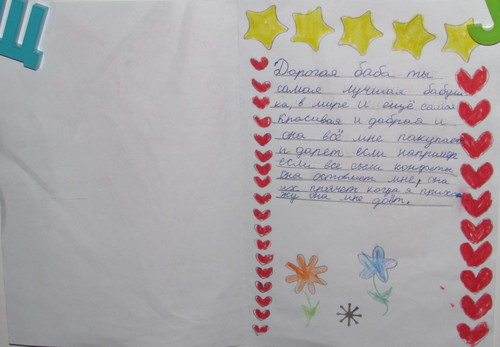 Щ
Дорогая баба ты
самая лучшая бабуш-
ка, в мире и ещё самая
красивая и добрая и
она всё мне покупает
и дарет если например
если все съели конфеты
она оставляет мне, она
их прячет когда я прихо-
жу она мне даёт.